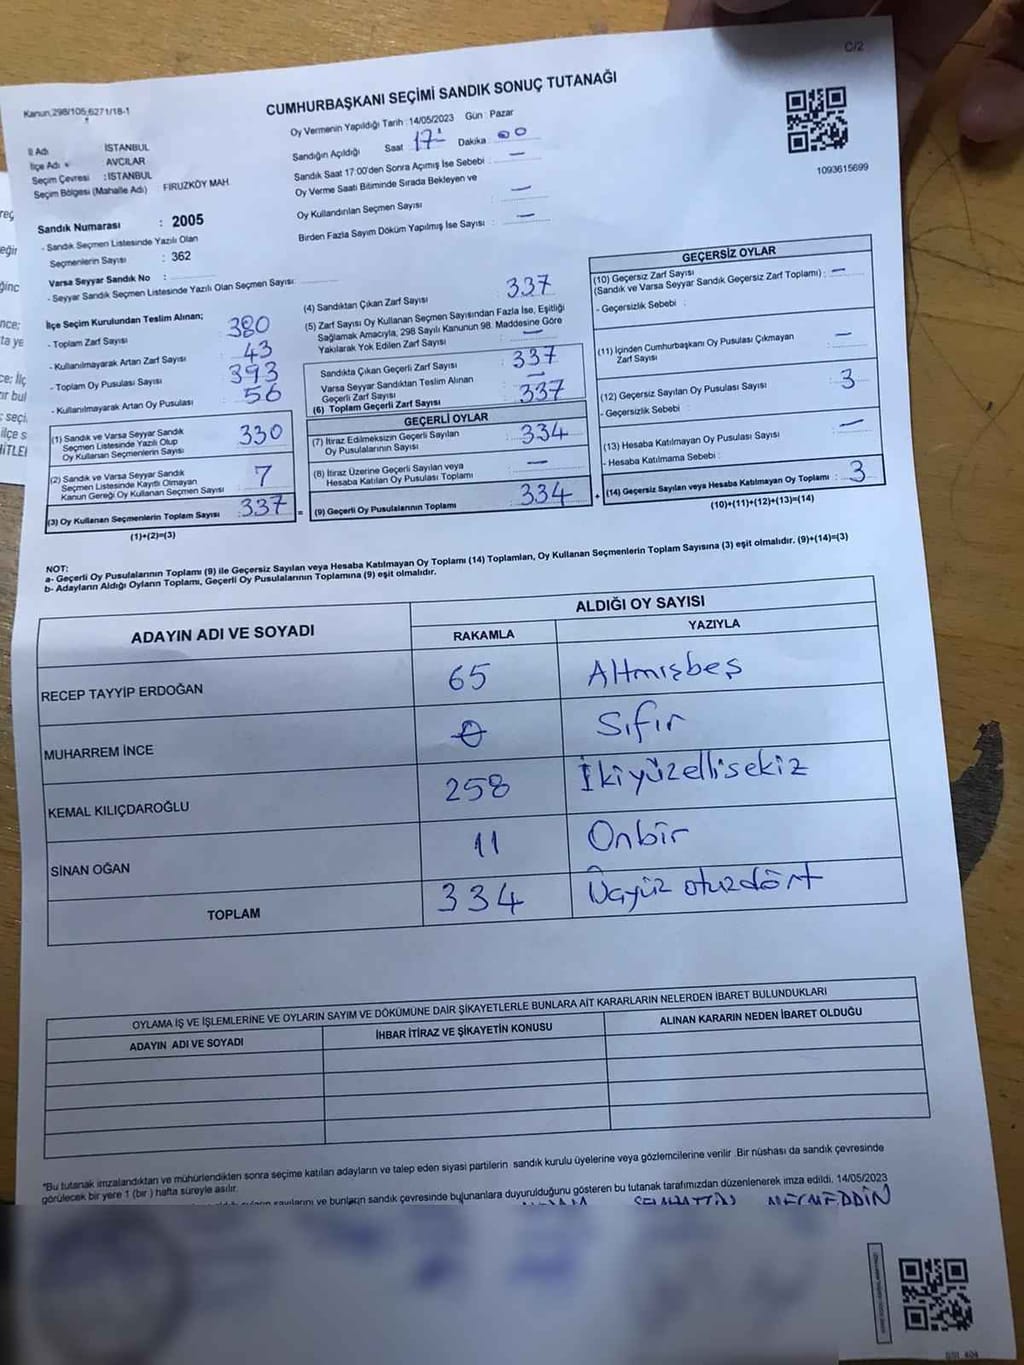 C/2
Kanun,298/105,6271/18-1
CUMHURBAŞKANI SEÇİMİ SANDIK SONUÇ TUTANAĞI
İl Adı İSTANBUL
İlçe Adı AVCILAR
Seçim Çevresi : İSTANBUL
Seçim Bölgesi (Mahalle Adı) FİRUZKÖY MAH.
Oy Vermenin Yapıldığı Tarih : 14/05/2023 Gün : Pazar
Sandığın Açıldığı Saat 17 Dakika 00
Sandık Saat 17:00'den Sonra Açımış İse Sebebi : —
Oy Verme Saati Bitiminde Sırada Bekleyen ve
Oy Kullandırılan Seçmen Sayısı : —
Birden Fazla Sayım Döküm Yapılmış İse Sayısı : —
1093615699
Sandık Numarası : 2005
- Sandık Seçmen Listesinde Yazılı Olan
Seçmenlerin Sayısı : 362
Varsa Seyyar Sandık No :
- Seyyar Sandık Seçmen Listesinde Yazılı Olan Seçmen Sayısı:
İlçe Seçim Kurulundan Teslim Alınan;
- Toplam Zarf Sayısı 380
- Kullanılmayarak Artan Zarf Sayısı 43
- Toplam Oy Pusulası Sayısı 393
- Kullanılmayarak Artan Oy Pusulası 56
(1) Sandık ve Varsa Seyyar Sandık
Seçmen Listesinde Yazılı Olup
Oy Kullanan Seçmenlerin Sayısı 330
(2) Sandık ve Varsa Seyyar Sandık
Seçmen Listesinde Kayıtlı Olmayan
Kanun Gereği Oy Kullanan Seçmen Sayısı 7
(3) Oy Kullanan Seçmenlerin Toplam Sayısı 337 =
(1)+(2)=(3)
(4) Sandıktan Çıkan Zarf Sayısı 337
(5) Zarf Sayısı Oy Kullanan Seçmen Sayısından Fazla İse, Eşitliği
Sağlamak Amacıyla, 298 Sayılı Kanunun 98. Maddesine Göre
Yakılarak Yok Edilen Zarf Sayısı —
Sandıkta Çıkan Geçerli Zarf Sayısı 337
Varsa Seyyar Sandıktan Teslim Alınan
Geçerli Zarf Sayısı —
(6) Toplam Geçerli Zarf Sayısı 337
GEÇERLİ OYLAR
(7) İtiraz Edilmeksizin Geçerli Sayılan
Oy Pusulalarının Sayısı 334
(8) İtiraz Üzerine Geçerli Sayılan veya
Hesaba Katılan Oy Pusulası Toplamı —
(9) Geçerli Oy Pusulalarının Toplamı 334 +
GEÇERSİZ OYLAR
(10) Geçersiz Zarf Sayısı
(Sandık ve Varsa Seyyar Sandık Geçersiz Zarf Toplamı) : —
- Geçersizlik Sebebi :
(11) İçinden Cumhurbaşkanı Oy Pusulası Çıkmayan
Zarf Sayısı : —
(12) Geçersiz Sayılan Oy Pusulası Sayısı : 3
- Geçersizlik Sebebi :
(13) Hesaba Katılmayan Oy Pusulası Sayısı : —
- Hesaba Katılmama Sebebi :
(14) Geçersiz Sayılan veya Hesaba Katılmayan Oy Toplamı : 3
(10)+(11)+(12)+(13)=(14)
NOT:
a- Geçerli Oy Pusulalarının Toplamı (9) ile Geçersiz Sayılan veya Hesaba Katılmayan Oy Toplamı (14) Toplamları, Oy Kullanan Seçmenlerin Toplam Sayısına (3) eşit olmalıdır. (9)+(14)=(3)
b- Adayların Aldığı Oyların Toplamı, Geçerli Oy Pusulalarının Toplamına (9) eşit olmalıdır.
ADAYIN ADI VE SOYADI
ALDIĞI OY SAYISI
RAKAMLA YAZIYLA
RECEP TAYYİP ERDOĞAN 65 Altmışbeş
MUHARREM İNCE 0 Sıfır
KEMAL KILIÇDAROĞLU 258 İkiyüzellisekiz
SİNAN OĞAN 11 Onbir
TOPLAM 334 Üçyüz otuzdört
OYLAMA İŞ VE İŞLEMLERİNE VE OYLARIN SAYIM VE DÖKÜMÜNE DAİR ŞİKAYETLERLE BUNLARA AİT KARARLARIN NELERDEN İBARET BULUNDUKLARI
ADAYIN ADI VE SOYADI İHBAR İTİRAZ VE ŞİKAYETİN KONUSU ALINAN KARARIN NEDEN İBARET OLDUĞU
*Bu tutanak imzalandıktan ve mühürlendikten sonra seçime katılan adayların ve talep eden siyasi partilerin sandık kurulu üyelerine veya gözlemcilerine verilir .Bir nüshası da sandık çevresinde
görülecek bir yere 1 (bir ) hafta süreyle asılır.
sayılarını ve bunların sandık çevresinde bulunanlara duyurulduğunu gösteren bu tutanak tarafımızdan düzenlenerek imza edildi. 14/05/2023
NECMEDDİN